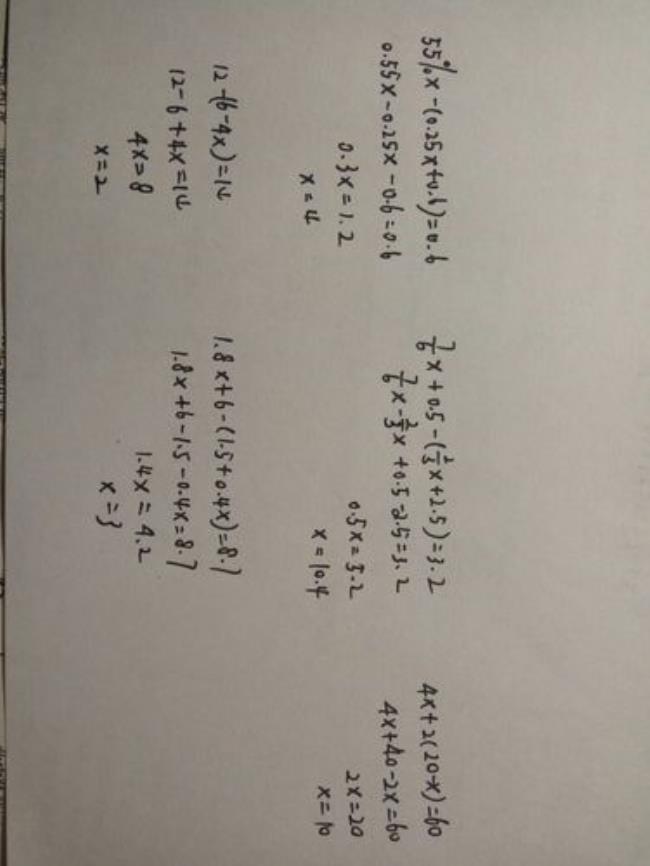 55%x-(0.25x+0.6)=0.6
0.55x-0.25x-0.6=0.6
0.3x=1.2
x=4
7/6x+0.5-(2/3x+2.5)=3.2
7/6x-2/3x+0.5-2.5=3.2
0.5x=5.2
x=10.4
4x+2(20-x)=60
4x+40-2x=60
2x=20
x=10
12-(6-4x)=14
12-6+4x=14
4x=8
x=2
1.8x+6-(1.5+0.4x)=8.7
1.8x+6-1.5-0.4x=8.7
1.4x=4.2
x=3